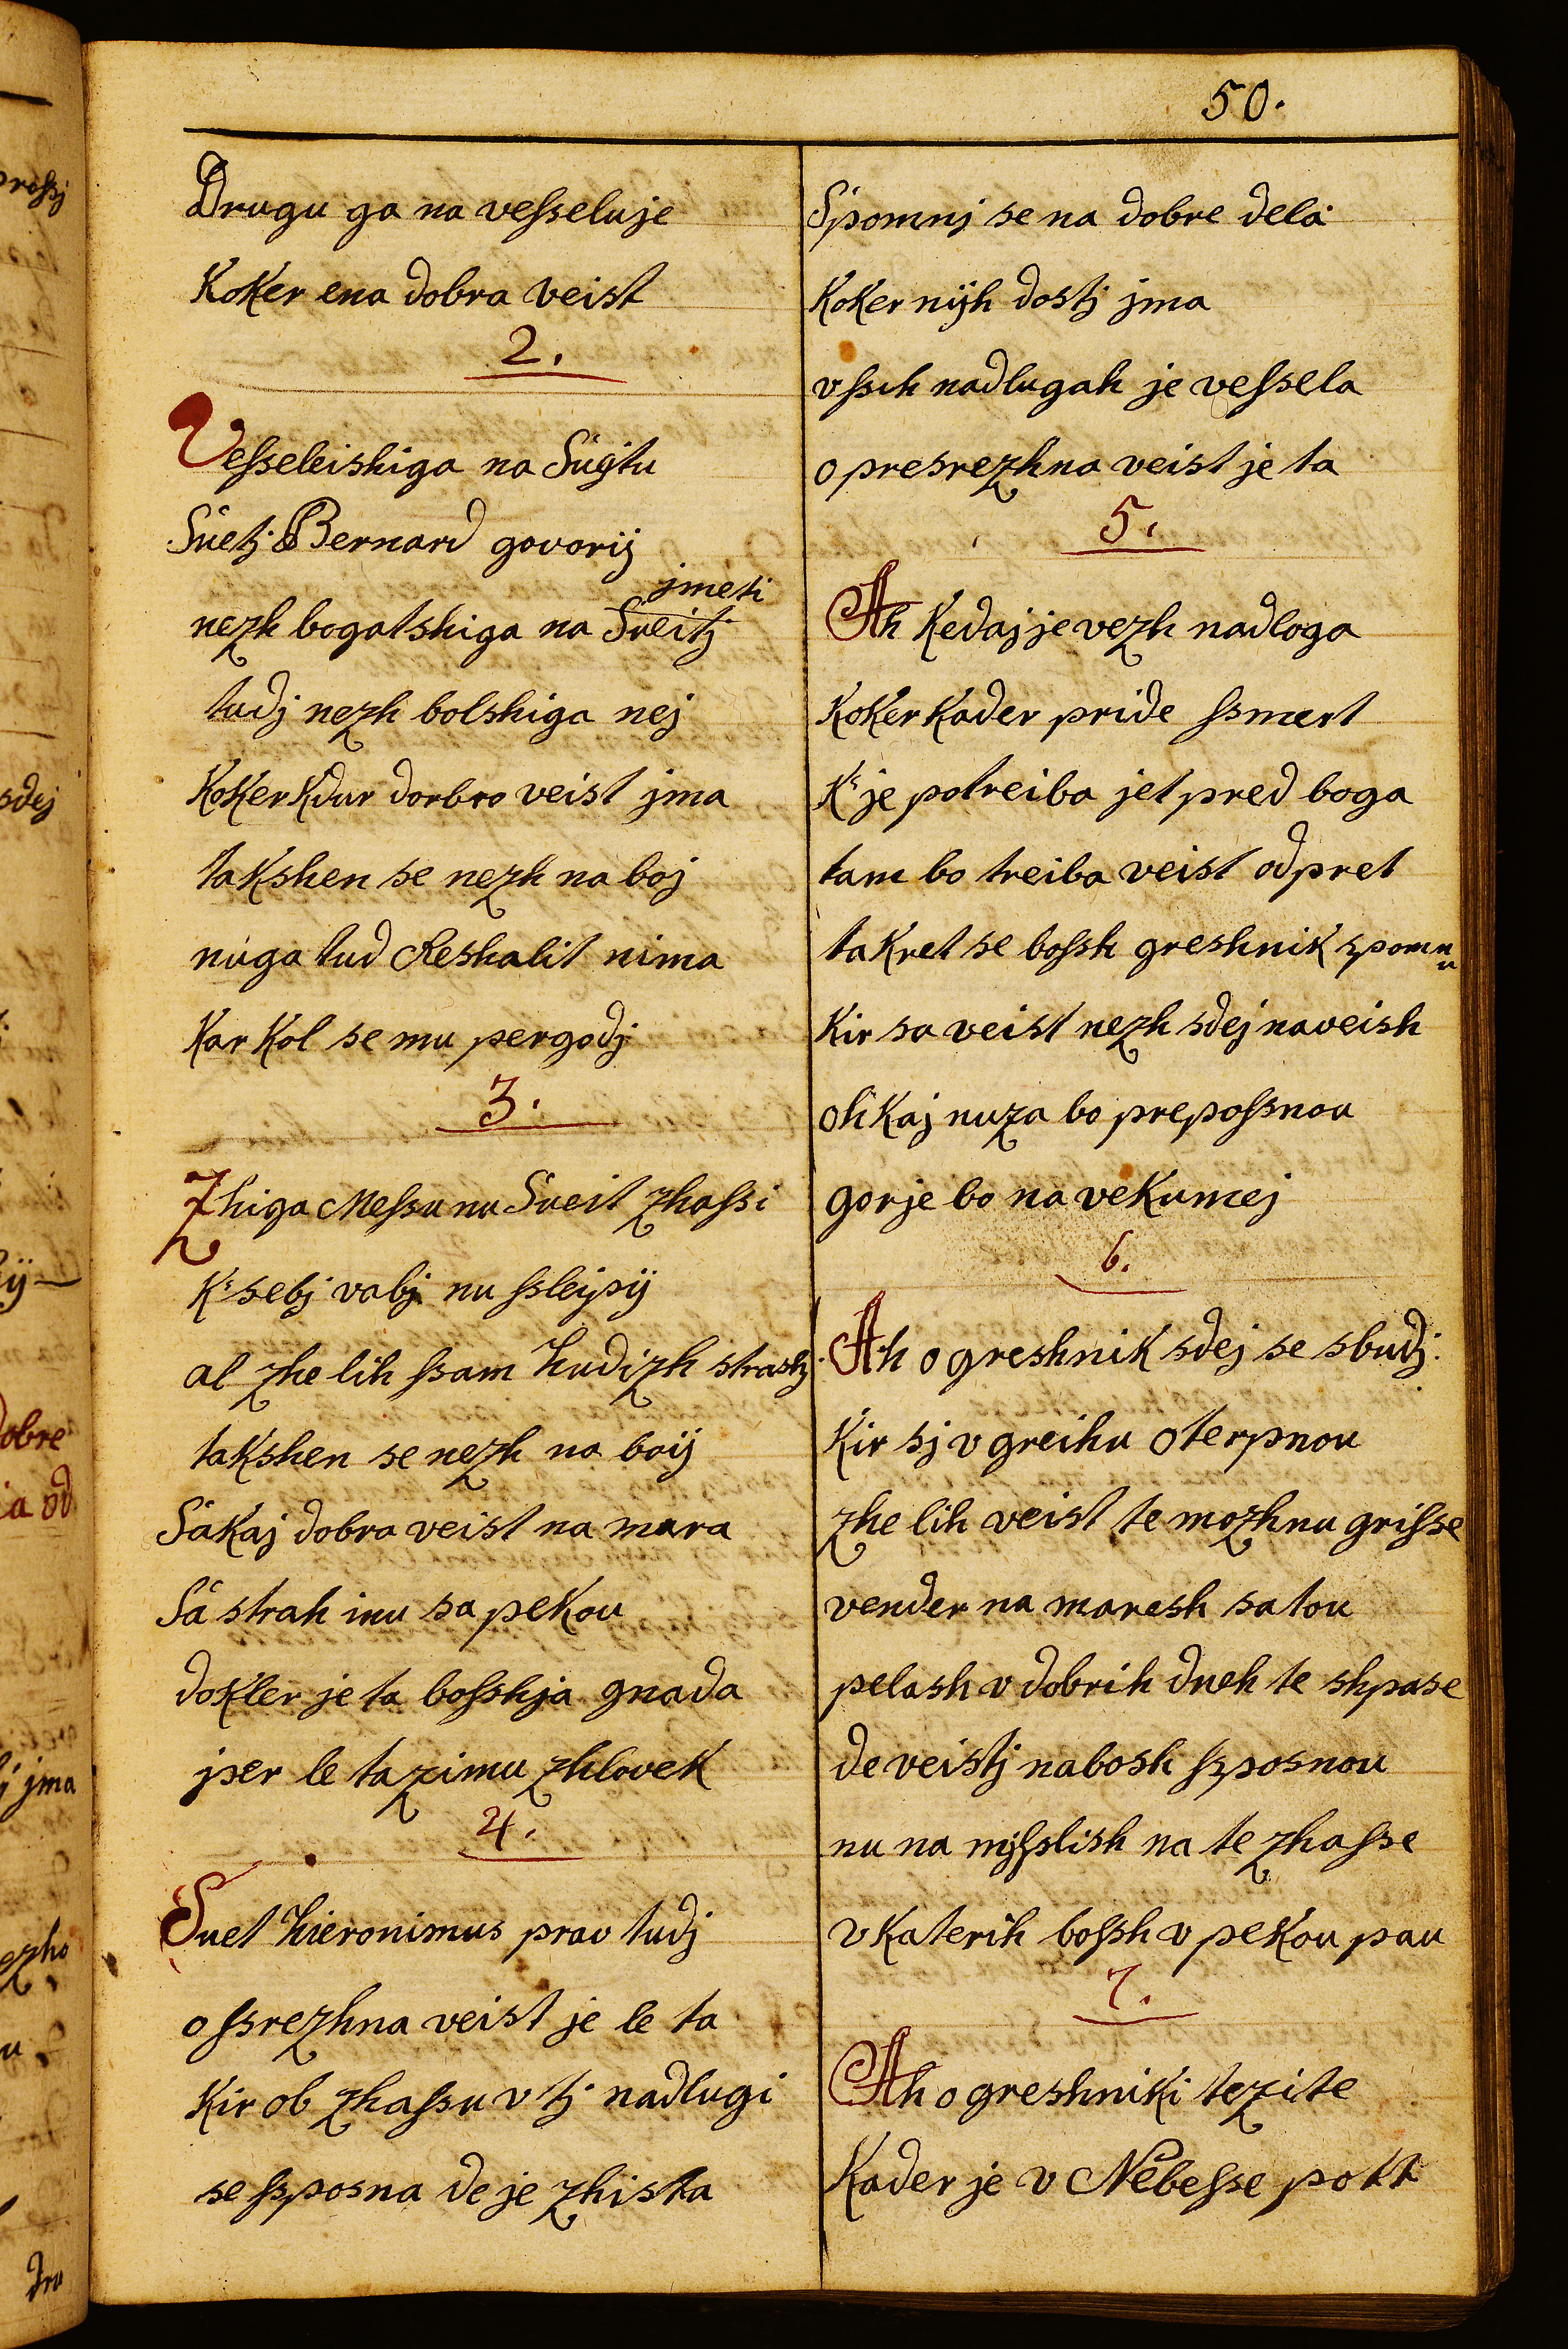 50.
Drugu ga na vesseluje
Koker ena dobra veist
2.
Vesseleishiga na Súgtu
Súetj Bernard govorij
jmeti
nezh bogatshiga na Sveitj
tudj nezh bolshiga nej
Koker Kdur dorbro veist jma
takshen se nezh na boj
nuga tud Reshalit nima
Kar Kol se mu pergodj
3.
Zhiga Messu nu Sueit zhassi
K: sebj vabj nu ssleipij
al zhe lih ssam hudizh strashj
takshen se nezh na boij
Sákaj dobra veist na mara
Sá strah inu sa pekou
dokler je ta bosshja gnada
per le ta zimu zhlovek
4.
Suet Hieronimus prav tudj
o ssrezhna veist je le ta
Kir ob zhassu v tj nadlugi
se ssposna de je zhista
Spomnj se na dobre dela
Koker nijh dostj jma
v ssih nadlugah je vessela
o presrezhna veist je ta
5.
Ah Kedaj je vezh nadloga
Koker Kader pride ssmert
K: je potreiba jet pred boga
tam bo treiba veist odpret
takret se bossh greshnik spomnu
Kir sa veist nezh sdej naveish
oh Kaj nuza bo prepossnou
gorje bo na vekumej
6.
Ah o greshnik sdej se sbudj
Kir sj v greihu oterpnou
zhe lih veist te mozhnu grisse
vender na maresh sa tou
pelash v dobrih dneh te shpase
de veistj nabosh ssposnou
nu na mjsslish na te zhasse
v katerih bossh v pekou pau
7.
Ah o greshniki tezite
Kader je v Nebesse pott